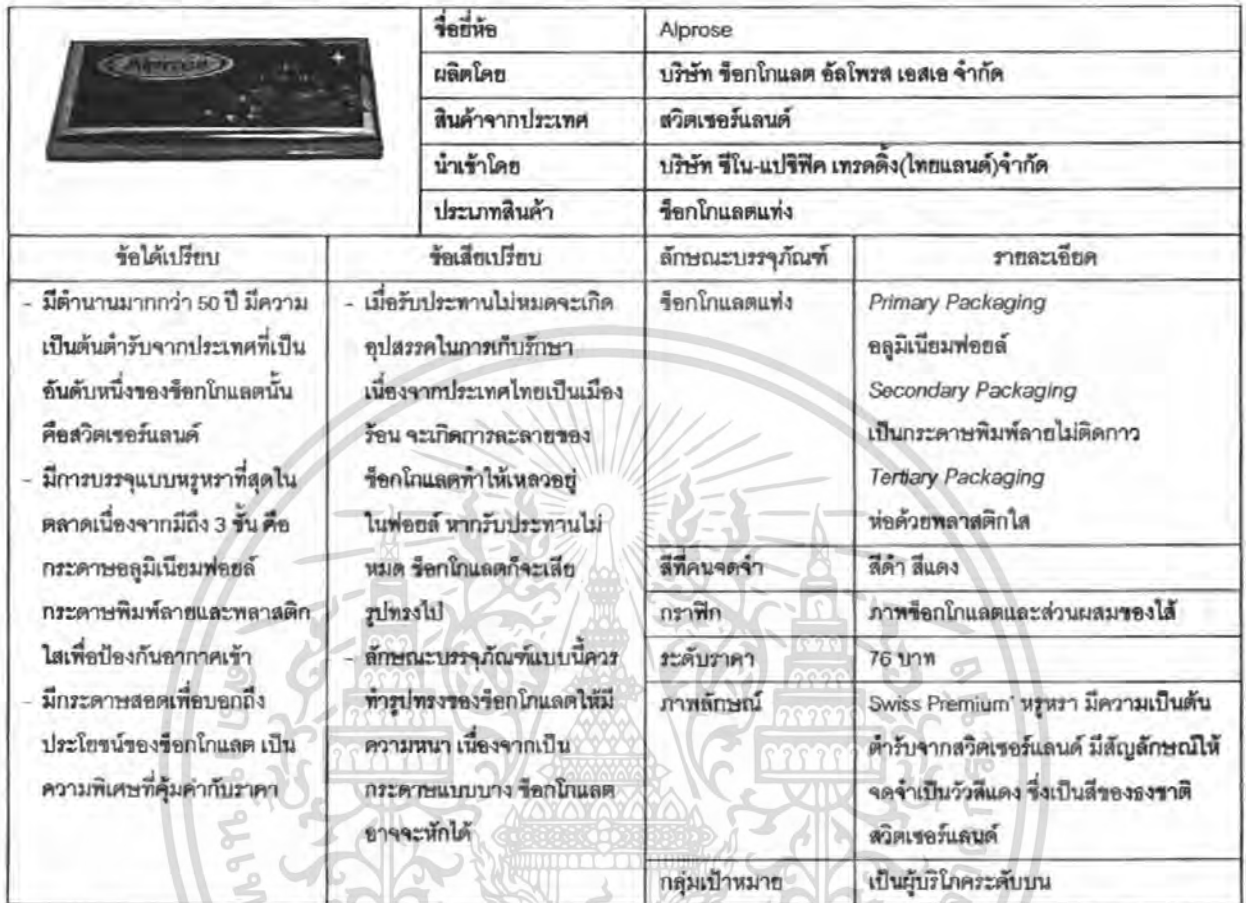 Alprose
ชื่อยี่ห้อ
Alprose
ผลิตโดย
บริษัท ช็อกโกแลต อัลโพรส เอสเอ จำกัด
สินค้าจากประเทศ
สวิตเซอร์แลนด์
นำเข้าโดย
บริษัท ซีโน-แปซิฟิค เทรดดิ้ง(ไทยแลนด์)จำกัด
ประเภทสินค้า
ช็อกโกแลตแท่ง
ข้อได้เปรียบ
- มีตำนานมากกว่า 50 ปี มีความ
เป็นต้นตำรับจากประเทศที่เป็น
อันดับหนึ่งของช็อกโกแลตนั้น
คือสวิตเซอร์แลนด์
- มีการบรรจุแบบหรูหราที่สุดใน
ตลาดเนื่องจากมีถึง 3 ชั้น คือ
กระดาษอลูมิเนียมฟอยล์
กระดาษพิมพ์ลายและพลาสติก
ใสเพื่อป้องกันอากาศเข้า
- มีกระดาษสอดเพื่อบอกถึง
ประโยชน์ของช็อกโกแลต เป็น
ความพิเศษที่คุ้มค่ากับราคา
ข้อเสียเปรียบ
- เมื่อรับประทานไม่หมดจะเกิด
อุปสรรคในการเก็บรักษา
เนื่องจากประเทศไทยเป็นเมือง
ร้อน จะเกิดการละลายของ
ช็อกโกแลตทำให้เหลวอยู่
ในฟอยล์ หากรับประทานไม่
หมด ช็อกโกแลตก็จะเสีย
รูปทรงไป
- ลักษณะบรรจุภัณฑ์แบบนี้ควร
ทำรูปทรงของช็อกโกแลตให้มี
ความหนา เนื่องจากเป็น
กระดาษแบบบาง ช็อกโกแลต
อาจจะหักได้
ลักษณะบรรจุภัณฑ์
รายละเอียด
ช็อกโกแลตแท่ง
Primary Packaging
อลูมิเนียมฟอยล์
Secondary Packaging
เป็นกระดาษพิมพ์ลายไม่ติดกาว
Tertiary Packaging
ห่อด้วยพลาสติกใส
สีที่คนจดจำ
สีดำ สีแดง
กราฟิก
ภาพช็อกโกแลตและส่วนผสมของไส้
ระดับราคา
76 บาท
ภาพลักษณ์
Swiss Premium' หรูหรา มีความเป็นต้น
ตำรับจากสวิตเซอร์แลนด์ มีสัญลักษณ์ให้
จดจำเป็นวัวสีแดง ซึ่งเป็นสีของธงชาติ
สวิตเซอร์แลนด์
กลุ่มเป้าหมาย
เป็นผู้บริโภคระดับบน